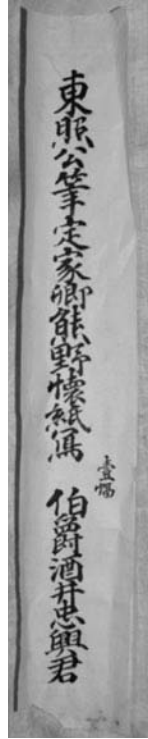 東照公筆定家卿熊野懐紙写 伯爵酒井忠興君
壹幅